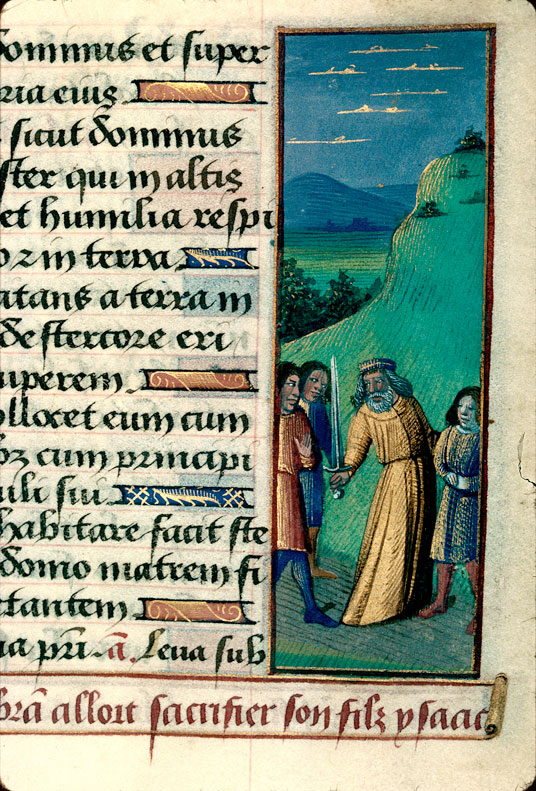 dominus et super
ria eius
sicut dominus
ster qui in altis
et humilia respi
or in terra
itans a terra in
de stercore eri
uperem
llocet eum cum
bz cum principi
uli sui
habitare facit ste
domo matrem fi
rtantem
ia pri. a. Leua sub
bra alloit sacrifier son filz ysaac